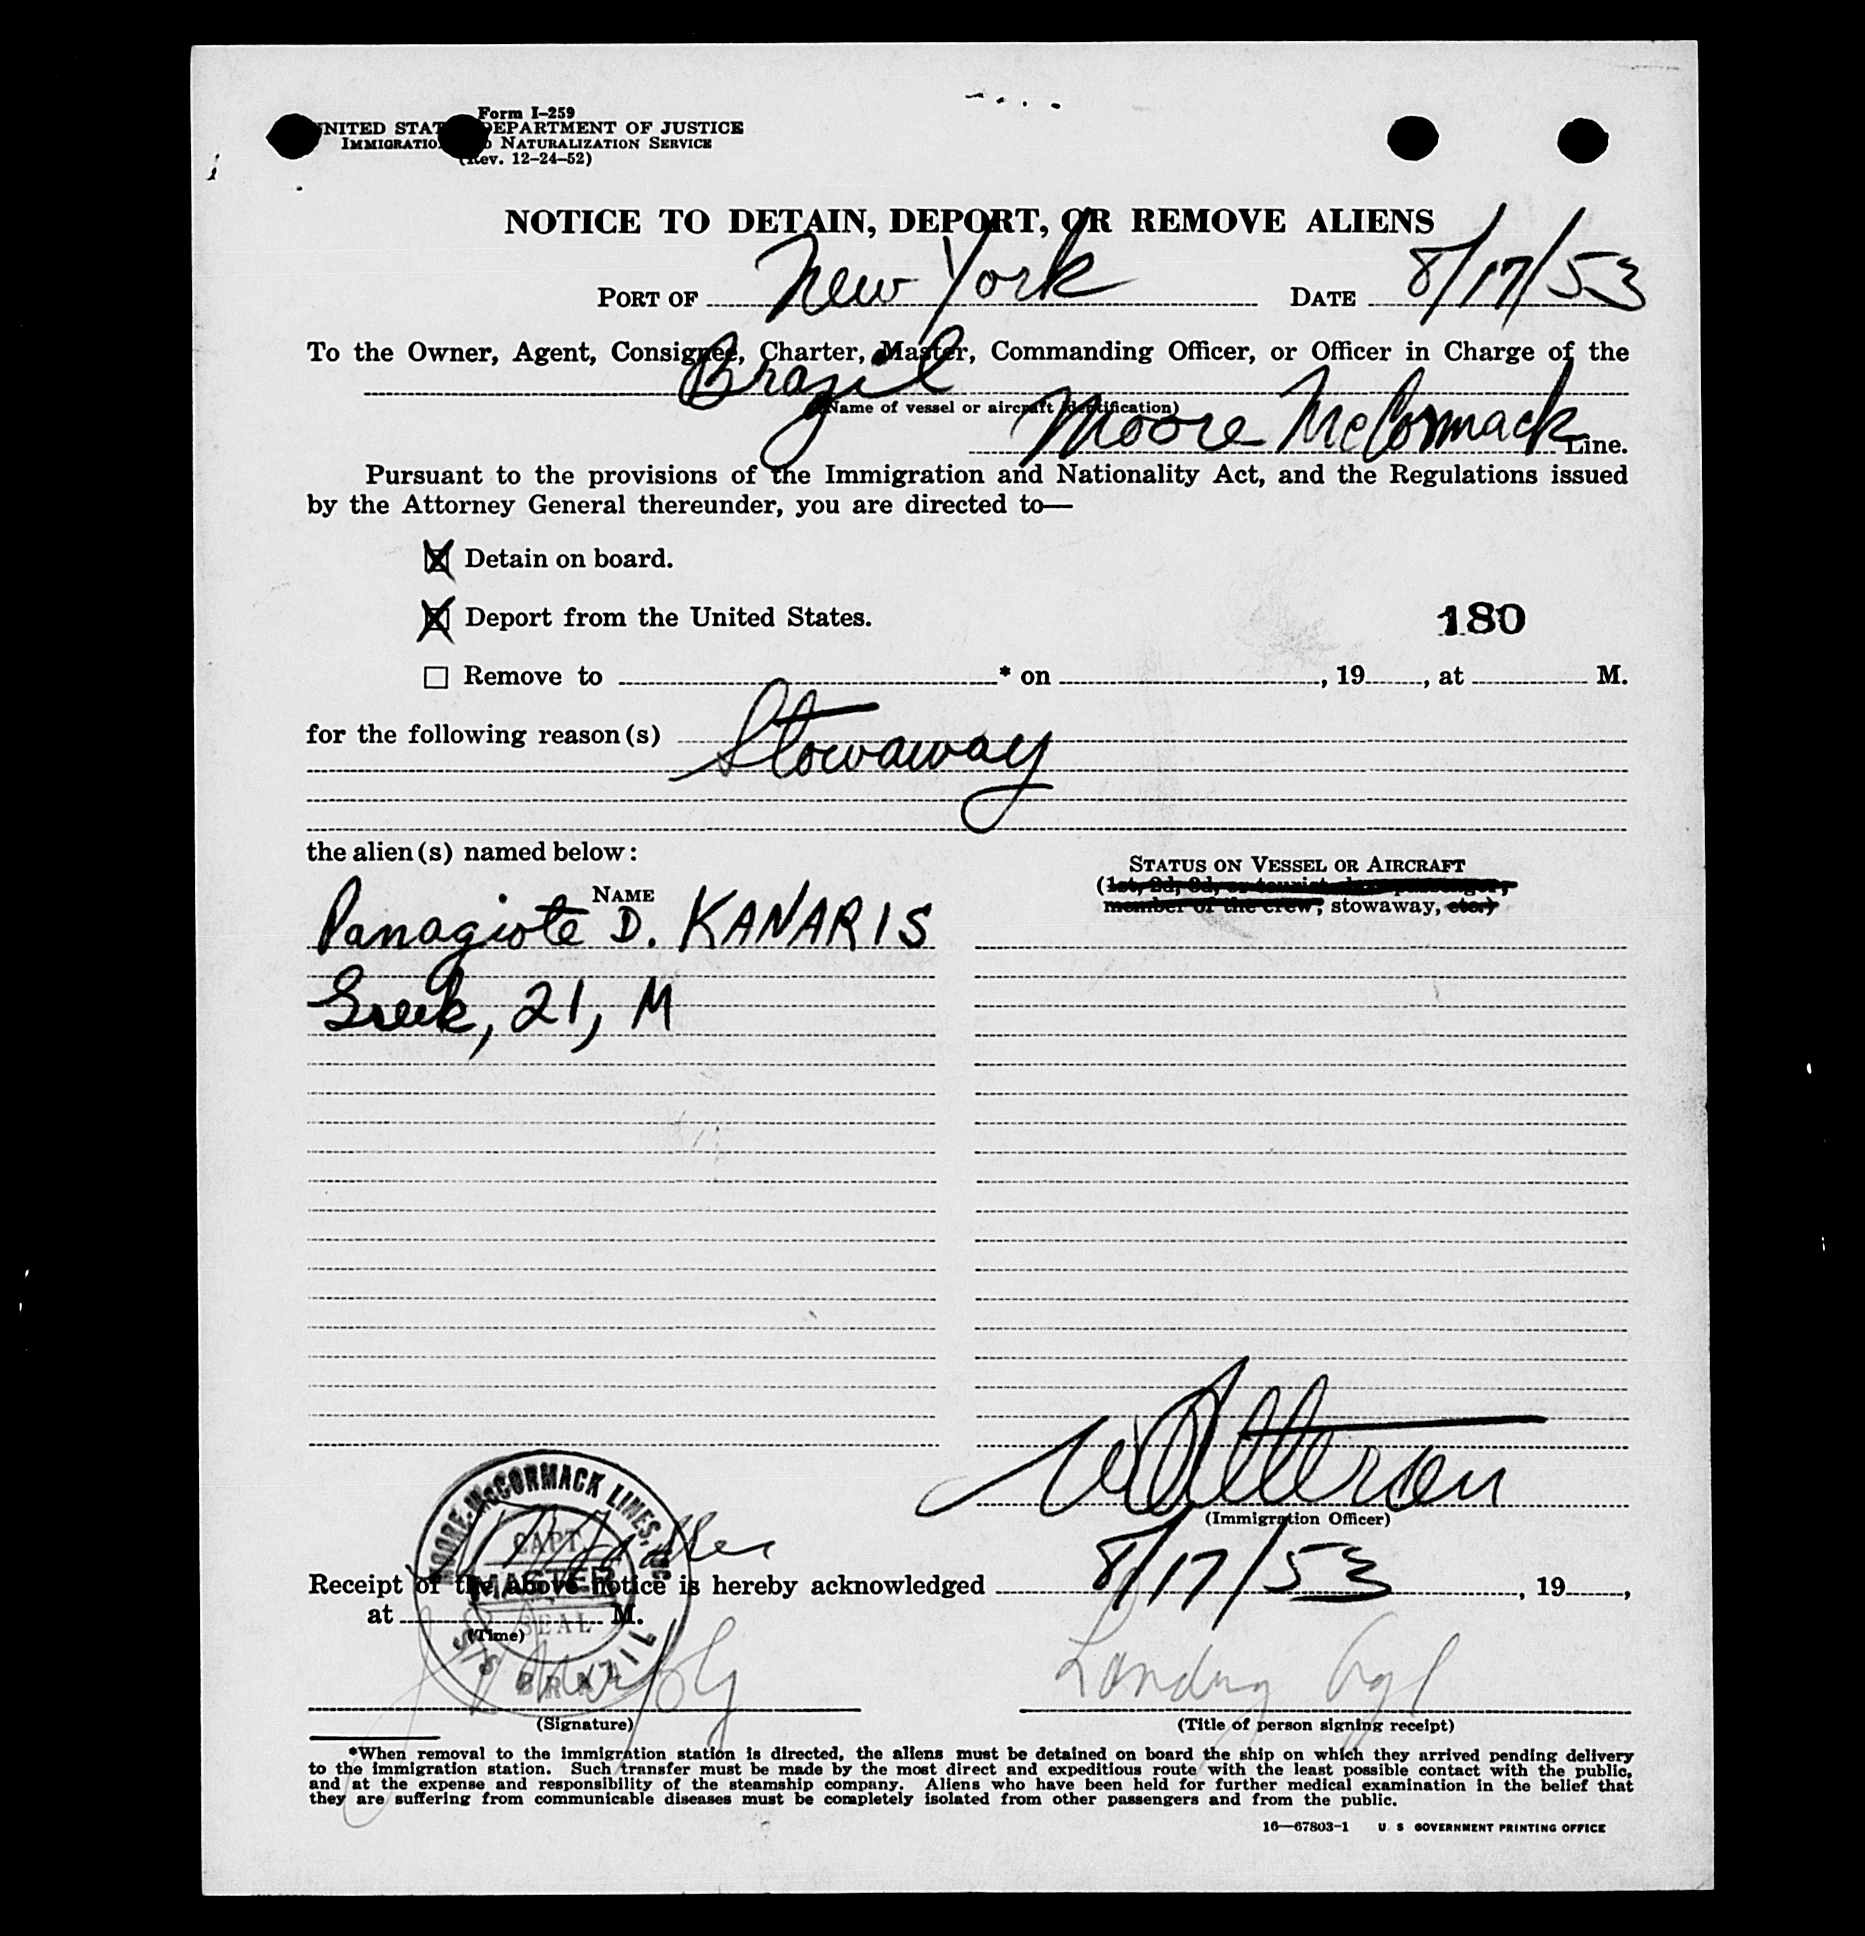 Form I-259
UNITED STATES DEPARTMENT OF JUSTICE
IMMIGRATION AND NATURALIZATION SERVICE
(Rev. 12-24-52)
NOTICE TO DETAIN, DEPORT, OR REMOVE ALIENS
PORT OF New York DATE 8/17/53
To the Owner, Agent, Consignee, Charter, Master, Commanding Officer, or Officer in Charge of the
Brazil
(Name of vessel or aircraft identification)
Moore McCormack Line.
Pursuant to the provisions of the Immigration and Nationality Act, and the Regulations issued
by the Attorney General thereunder, you are directed to—
Detain on board.
Deport from the United States.
180
Remove to * on , 19 , at M.
for the following reason(s) Stowaway
the alien(s) named below:
STATUS ON VESSEL OR AIRCRAFT
(1st, 2d, 3d, or tourist class passenger,
member of the crew, stowaway, etc.)
NAME
Panagiote D. KANARIS
Greek, 21, M
(Immigration Officer)
MOORE-McCORMACK LINES, INC
CAPT.
MASTER
SEAL
S/S BRAZIL
Receipt of the above notice is hereby acknowledged 8/17/53, 19 ,
at M.
(Time)
Landing Agt
(Signature) (Title of person signing receipt)
*When removal to the immigration station is directed, the aliens must be detained on board the ship on which they arrived pending delivery
to the immigration station. Such transfer must be made by the most direct and expeditious route with the least possible contact with the public,
and at the expense and responsibility of the steamship company. Aliens who have been held for further medical examination in the belief that
they are suffering from communicable diseases must be completely isolated from other passengers and from the public.
16—67803-1 U S GOVERNMENT PRINTING OFFICE